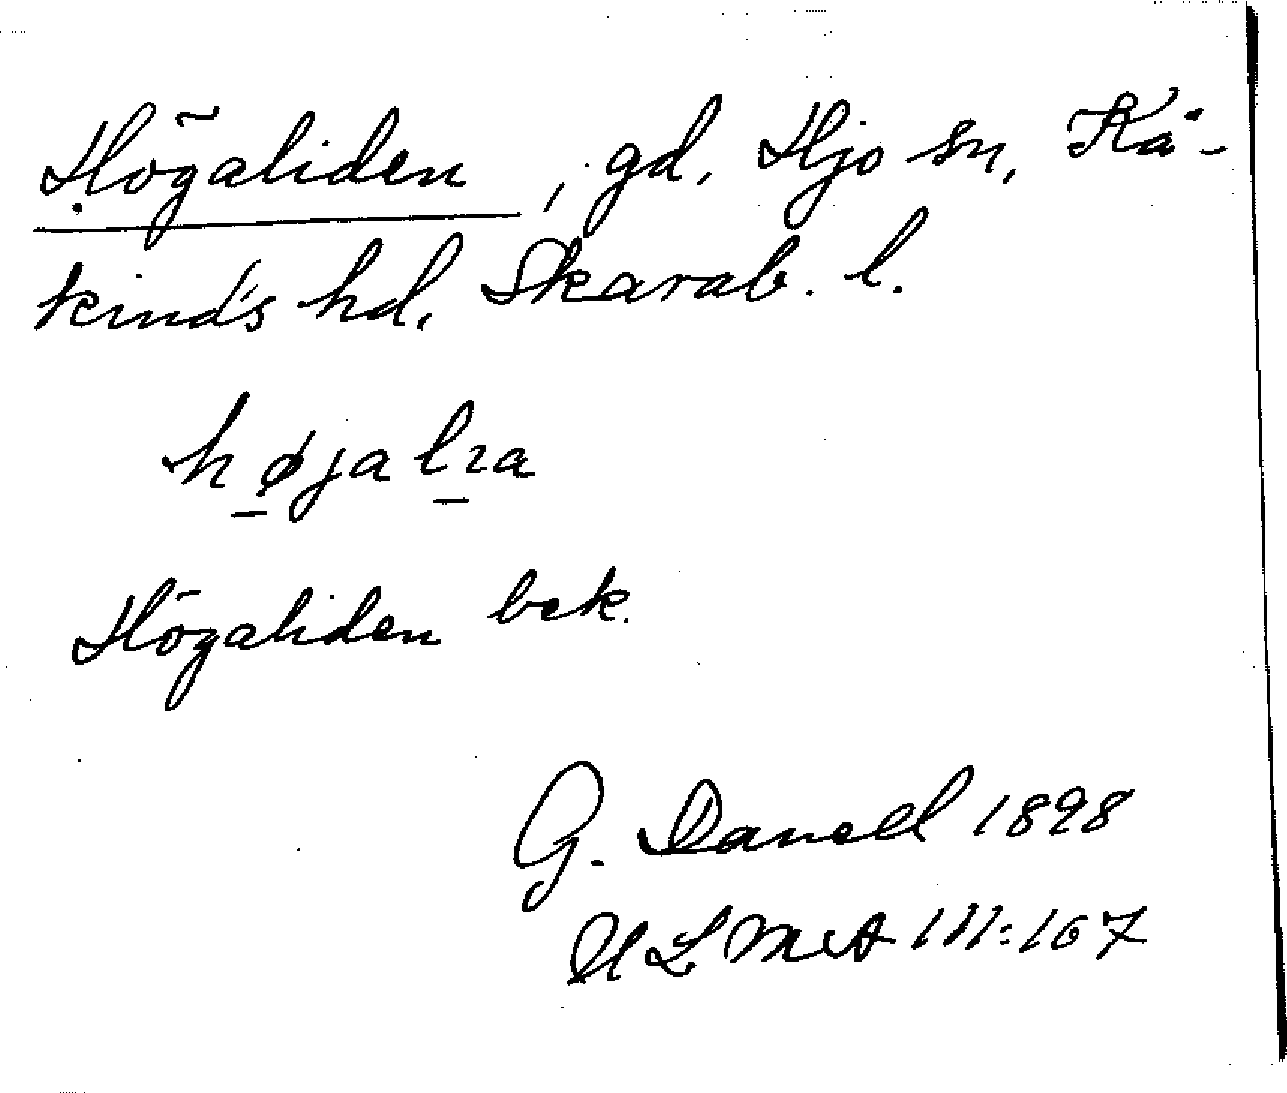 Högaliden, gd, Hjo sn, Kå-
kinds hd, Skarab. l.
højalıa
Högaliden bek.
G. Danell 1898
ULMA 111:167